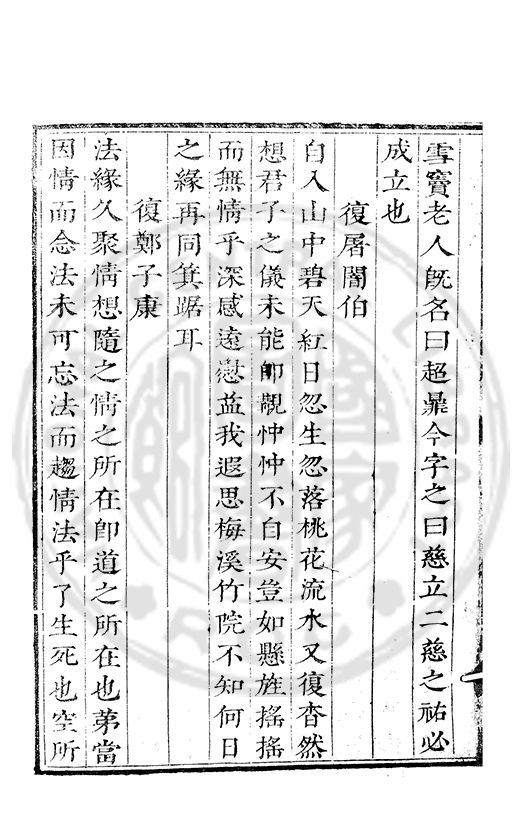 雪竇老人旣名曰超鼻今字之曰慈立二慈之祐必
成立也
復屠闇伯
自入山中碧天紅日忽生忽落桃花流水又復杳然
想君子之儀未能卽覩忡忡不自安豈如懸旌搖搖
而無情乎深感遠慰葢我遐思梅溪竹院不知何日
之緣再同箕踞耳
復鄭子康
法緣久聚情想隨之情之所在卽道之所在也苐當
因情而念法未可忘法而趨情法乎了生死也空所